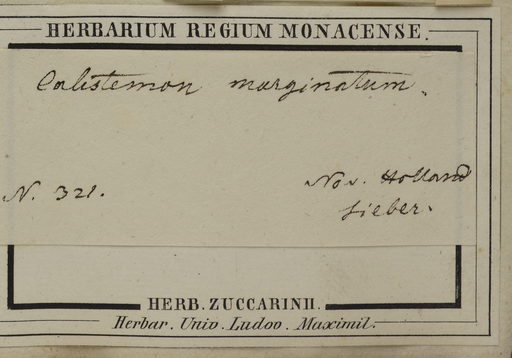 HERBARIUM REGIUM MONACENSE.
Calistemon marginatum.
N. 321.
Nov. Holland
Sieber.
HERB. ZUCCARINII.
Herbar. Univ. Ludov. Maximil.